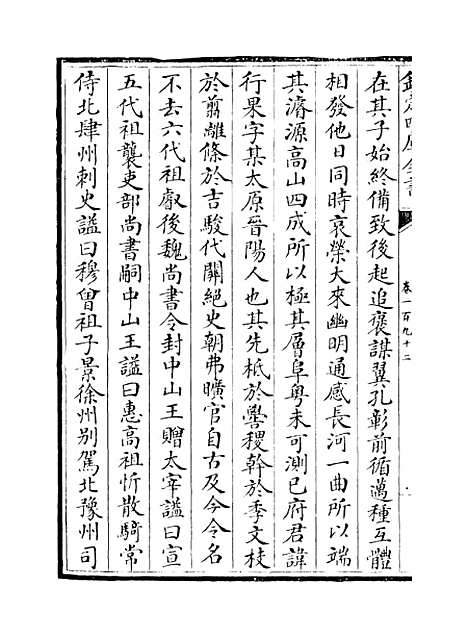 欽定四庫全書
卷一百九十二
在其子始終備致後起追褒謀翼孔彰前循邁種互體
相發他日同時哀榮大來幽明通感長河一曲所以端
其濬源高山四成所以極其層阜粤未可測已府君諱
行果字某太原晉陽人也其先柢於嚳稷幹於季文枝
於翦離條於吉駿代闕絶史朝弗曠官自古及今令名
不去六代祖叡後魏尚書令封中山王贈太宰謚曰宣
五代祖襲吏部尚書嗣中山王謚曰惠高祖忻散騎常
侍北肆州刺史謚曰穆曾祖子景徐州别駕北豫州司